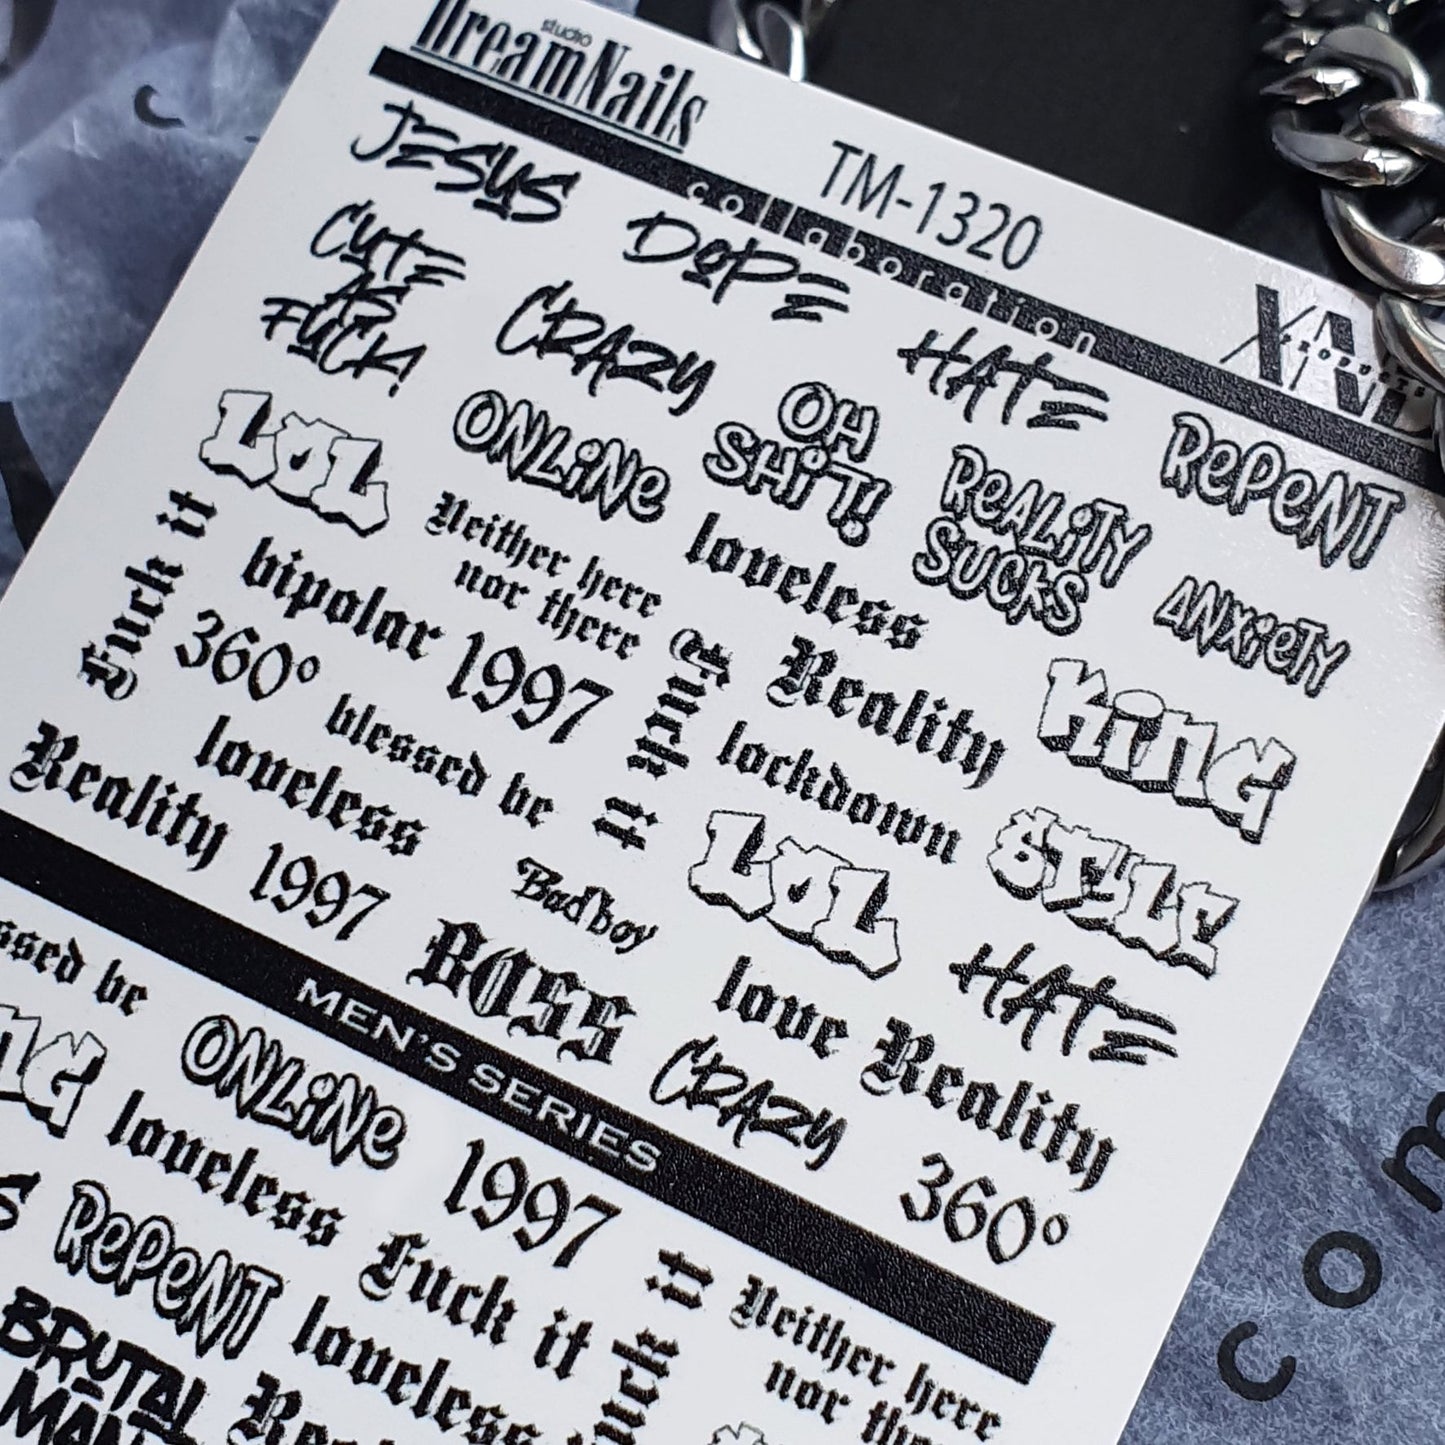 studio
DreamNails
TM-1320
collaboration
PRODUCTS
JESUS
DOPE
HATE
REPENT
CUTE
AS
FUCK!
CRAZY
OH
SHIT!
REALITY
SUCKS
ANXIETY
LOL
ONLINE
loveless
Reality
KING
Fuck it
Neither here
nor there
bipolar 1997
Fuck it
lockdown
STYLE
360°
blessed be
LOL
HATE
loveless
Badboy
love Reality
Reality 1997
BOSS
CRAZY
360°
MEN'S SERIES
be
ONLINE
1997
loveless
Fuck it
it
Neither here
nor
REPENT
loveless
BRUTAL